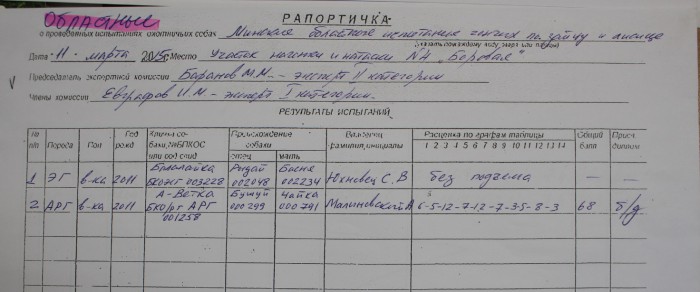 ОБЛАСТНЫЕ
РАПОРТИЧКА
о проведенных испытаниях охотничьих собак Минские областные испытания гончих по зайцу и лисице
(указать по какому виду зверя или птицы)
Дата 11 марта 2015г. Место Участок нагонки и натаски №4 „Боровая"
Председатель экспертной комиссии Баранов М.М. - эксперт II категории
Члены комиссии Евграфов И.М - эксперт I категории.
РЕЗУЛЬТАТЫ ИСПЫТАНИЙ
№ п/п Порода Пол Год рожд Кличка собаки, №ВПКОС или род свид Происхождение собаки отец мать Владелец фамилия, инициалы Расценка по графам таблицы 1 2 3 4 5 6 7 8 9 10 11 12 13 14 Общий балл Присв. диплом
1 ЭГ в-ка 2011 Балалайка БКОЭГ 003228 Рыдай 002048 Басня 002234 Юхновец С.В без подъема — —
2 АРГ в-ка 2011 А-Ветка БКО/рг АРГ 001258 Бушуй 000299 Чайка 000791 Малиновский А 6-5-12-7-12-7-3-5-8-3 68 б/д